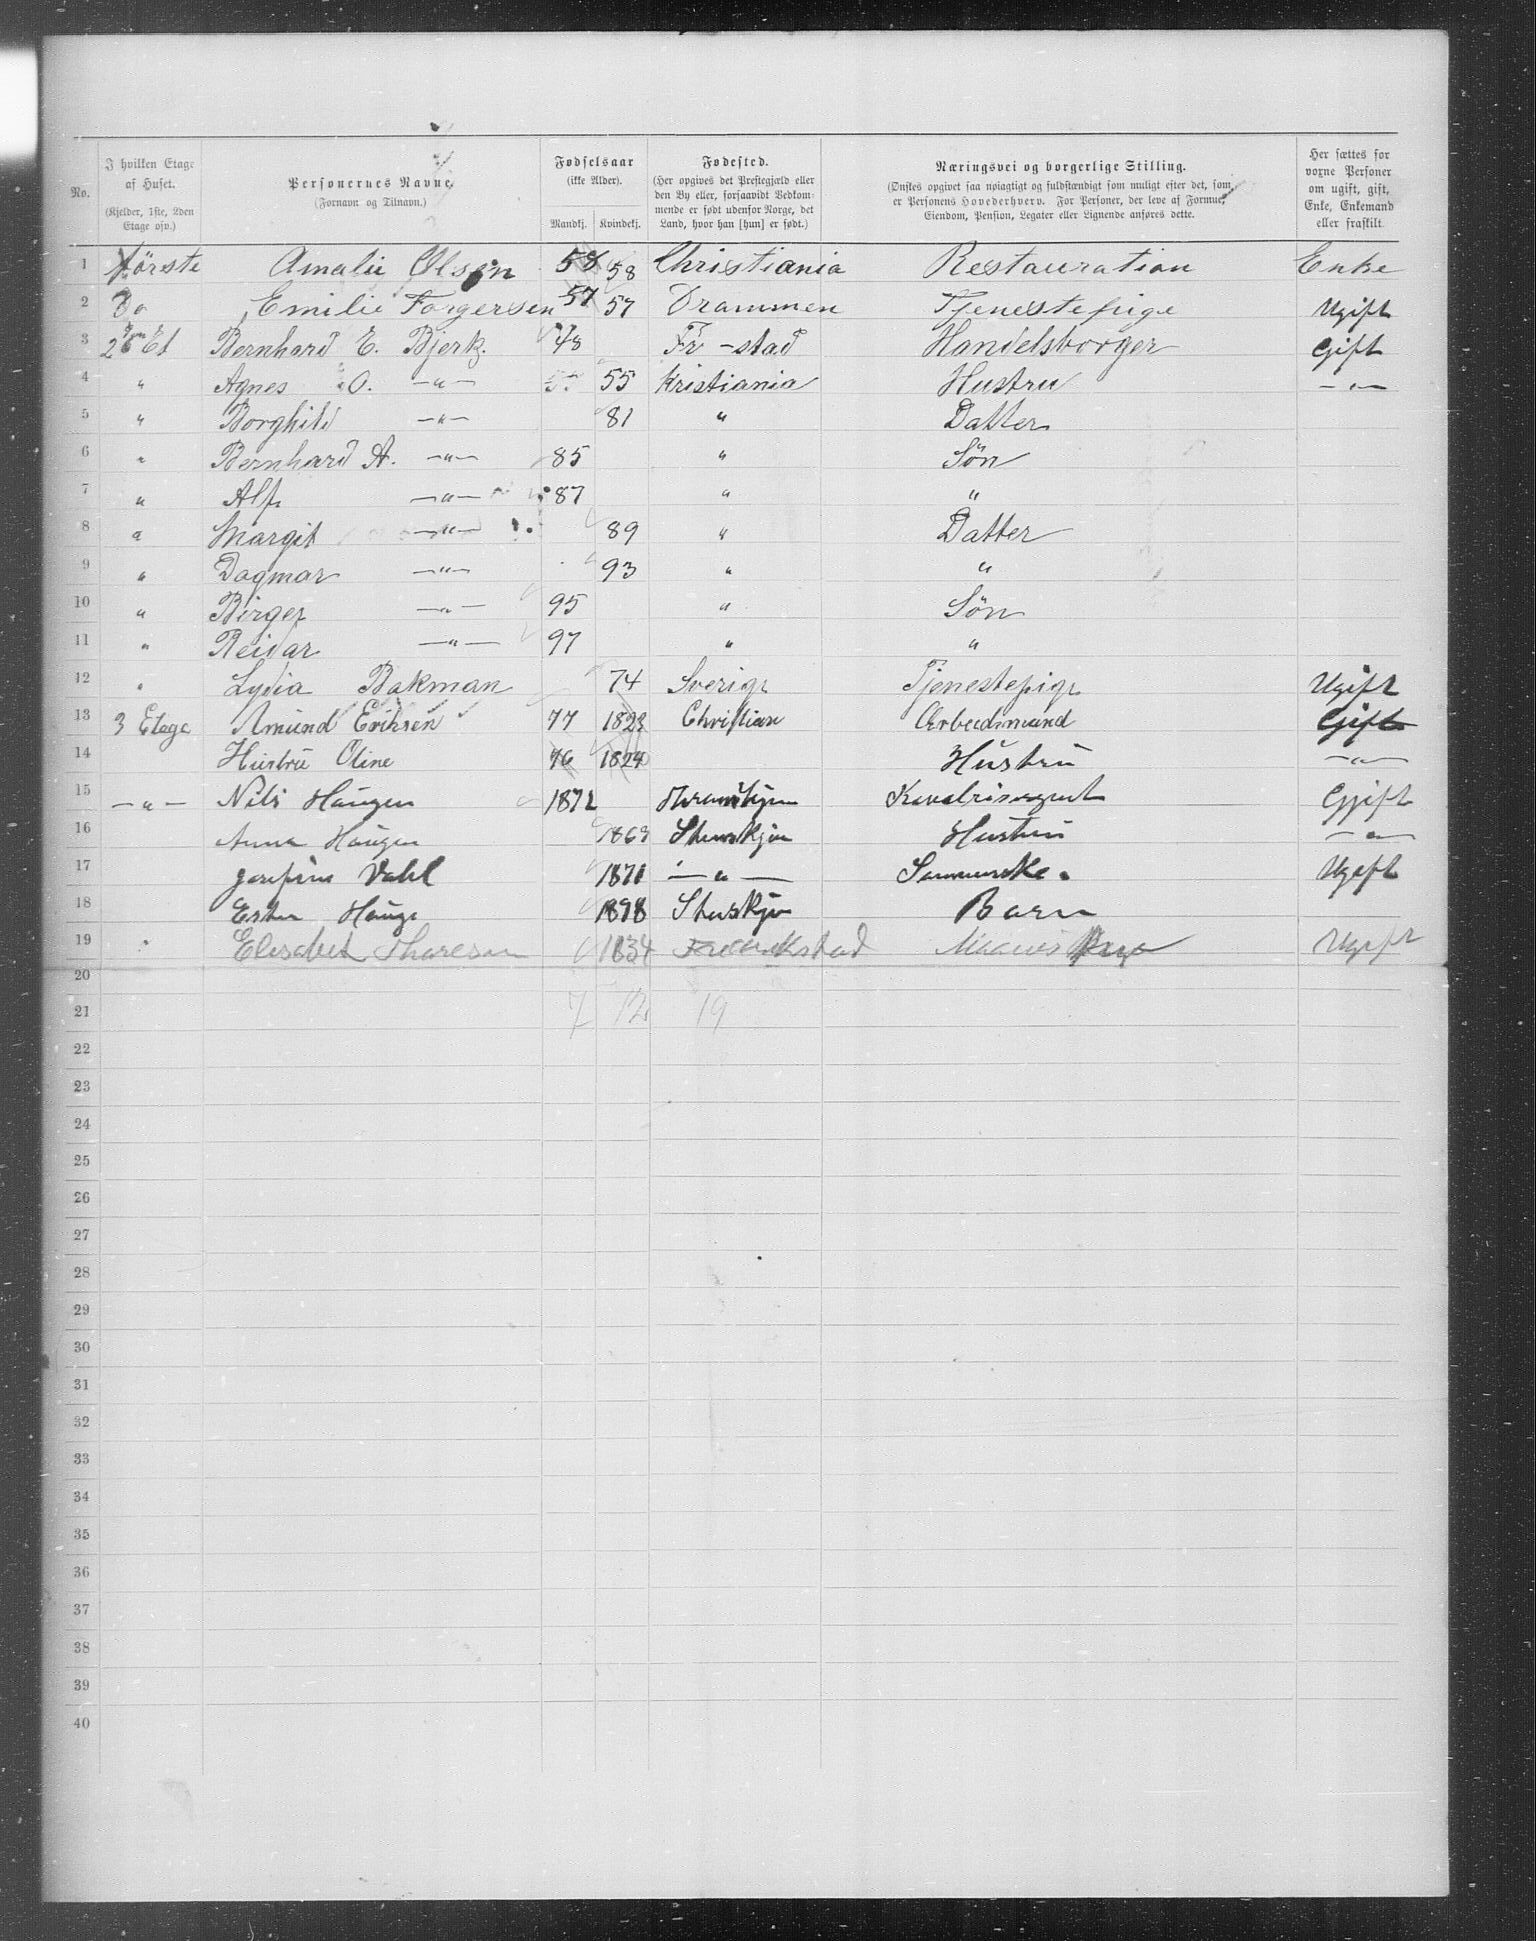 No.
I hvilken Etage af Huset. (Kjelder, 1ste, 2den Etage osv.)
Personernes Navne. (Fornavn og Tilnavn.)
Fødselsaar (ikke Alder). Mandkj. Kvindekj.
Fødested. (Her opgives det Prestegjæld eller den By eller, forsaavidt Vedkommende er født udenfor Norge, det Land, hvor han [hun] er født.)
Næringsvei og borgerlige Stilling. (Ønskes opgivet saa nøiagtigt og fuldstændigt som muligt efter det, som er Personens Hovederhverv. For Personer, der leve af Formue, Eiendom, Pension, Legater eller Lignende anføres dette.
Her sættes for voxne Personer om ugift, gift, Enke, Enkemand eller fraskilt.
1 Første Amalie Olsen 58 58 Christiania Restauration Enke
2 Do Emilie Torgersen 57 57 Drammen Tjenestepige Ugift
3 2 Et Bernhard E. Bjerk. 48 Fr-stad Handelsborger Gift
4 " Agnes O. —"— 55 55 Kristiania Hustru —"—
5 " Borghild —"— 81 " Datter
6 " Bernhard A. —"— 85 " Søn
7 " Alf —"— 87 " "
8 " Margit —"— 89 " Datter
9 " Dagmar —"— 93 " "
10 " Birger —"— 95 " Søn
11 " Reidar —"— 97 " "
12 " Lydia Bakman 74 Sverige Tjenestepige Ugift
13 3 Etage Amund Eriksen 77 1823 Christian Arbeidsmand Gift
14 Hustru Oline 76 1824 Hustru —"—
15 —"— Nils Haugen 1872 Kavalrisergent Gjift
16 Anna Haugen 1869 Stenskjær Hustru —"—
17 Josefine Vahl 1871 —"— Ugift
18 Ester Hauge 1898 Stenskjær Barn
19 " Elisabet Thoresen 1834 Fredrikstad Ugift
20
21 7 12 19
22
23
24
25
26
27
28
29
30
31
32
33
34
35
36
37
38
39
40